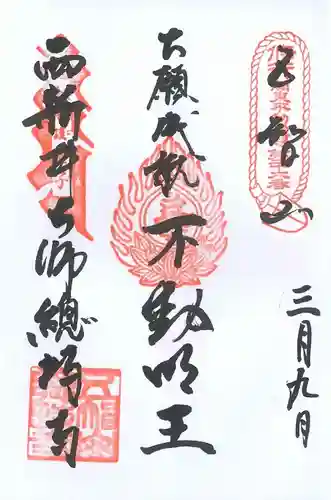 五智山
三月九日
大願成就不動明王
西新井大師總持寺